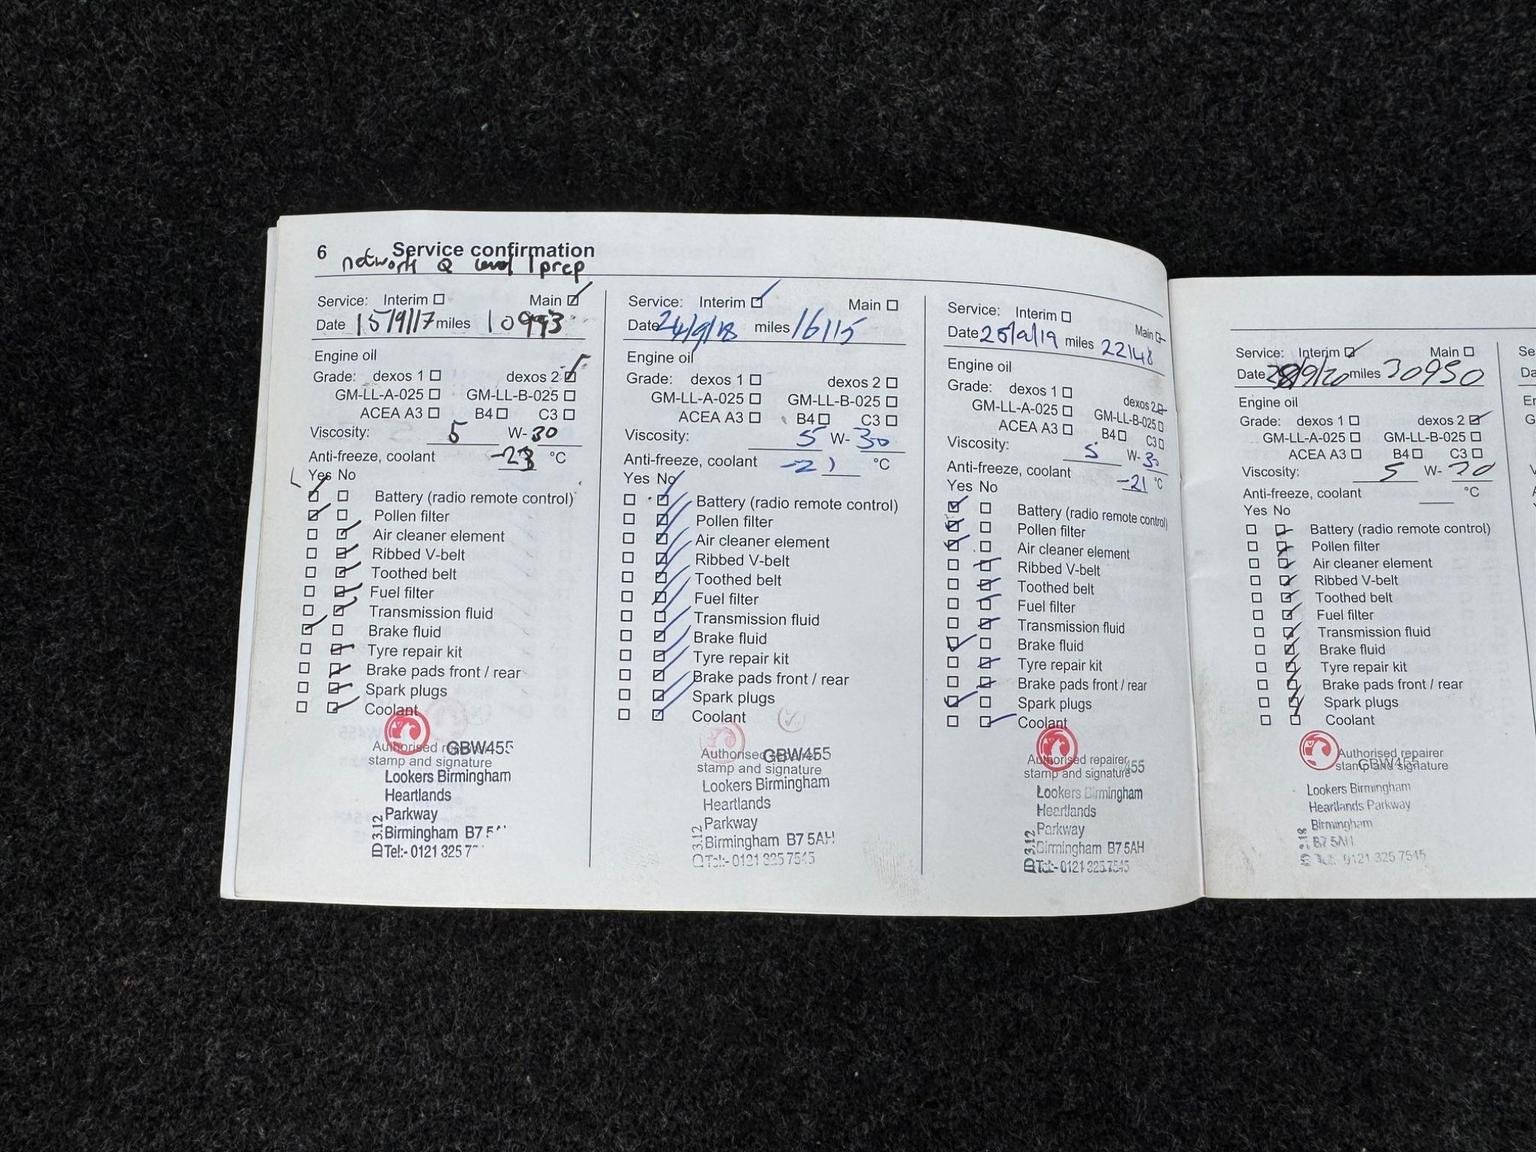 6 Service confirmation
network Q level 1 prep
Service: Interim Main
Date 15/9/17 miles 10993
Engine oil
Grade: dexos 1 dexos 2
GM-LL-A-025 GM-LL-B-025
ACEA A3 B4 C3
Viscosity: 5 W-30
Anti-freeze, coolant -23 °C
Yes No
Battery (radio remote control)
Pollen filter
Air cleaner element
Ribbed V-belt
Toothed belt
Fuel filter
Transmission fluid
Brake fluid
Tyre repair kit
Brake pads front / rear
Spark plugs
Coolant
Authorised
GBW455
stamp and signature
Lookers Birmingham
Heartlands
Parkway
Birmingham B7
Tel:- 0121 325
Service: Interim Main
Date 24/9/18 miles 16115
Engine oil
Grade: dexos 1 dexos 2
GM-LL-A-025 GM-LL-B-025
ACEA A3 B4 C3
Viscosity: 5 W-30
Anti-freeze, coolant -21 °C
Yes No
Battery (radio remote control)
Pollen filter
Air cleaner element
Ribbed V-belt
Toothed belt
Fuel filter
Transmission fluid
Brake fluid
Tyre repair kit
Brake pads front / rear
Spark plugs
Coolant
Authorised
GBW455
stamp and signature
Lookers Birmingham
Heartlands
Parkway
Birmingham B7 5AH
Tel:- 0121 325 7545
Service: Interim Main
Date 25/9/19 miles 22148
Engine oil
Grade: dexos 1 dexos 2
GM-LL-A-025 GM-LL-B-025
ACEA A3 B4 C3
Viscosity: 5 W-30
Anti-freeze, coolant -21 °C
Yes No
Battery (radio remote control)
Pollen filter
Air cleaner element
Ribbed V-belt
Toothed belt
Fuel filter
Transmission fluid
Brake fluid
Tyre repair kit
Brake pads front / rear
Spark plugs
Coolant
Authorised repairer
stamp and signature
Lookers Birmingham
Heartlands
Parkway
Birmingham B7 5AH
Tel:- 0121 325 7545
Service: Interim Main
Date 28/9/20 miles 30950
Engine oil
Grade: dexos 1 dexos 2
GM-LL-A-025 GM-LL-B-025
ACEA A3 B4 C3
Viscosity: 5 W-30
Anti-freeze, coolant °C
Yes No
Battery (radio remote control)
Pollen filter
Air cleaner element
Ribbed V-belt
Toothed belt
Fuel filter
Transmission fluid
Brake fluid
Tyre repair kit
Brake pads front / rear
Spark plugs
Coolant
Authorised repairer
stamp and signature
GBW455
Lookers Birmingham
Heartlands Parkway
Birmingham
B7 5AH
0121 325 7545